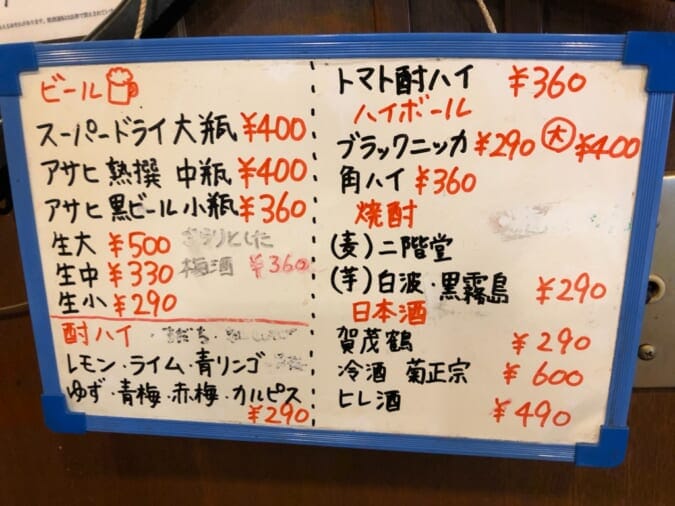 ビール
スーパードライ大瓶 ¥400
アサヒ 熟撰 中瓶 ¥400
アサヒ 黒ビール 小瓶 ¥360
生大 ¥500
生中 ¥330
梅酒 ¥360
生小 ¥290
酎ハイ
レモン・ライム・青リンゴ
ゆず・青梅・赤梅・カルピス
¥290
トマト酎ハイ ¥360
ハイボール
ブラックニッカ ¥290 大 ¥400
角ハイ ¥360
焼酎
(麦)二階堂
(芋)白波・黒霧島 ¥290
日本酒
賀茂鶴 ¥290
冷酒 菊正宗 ¥600
ヒレ酒 ¥490